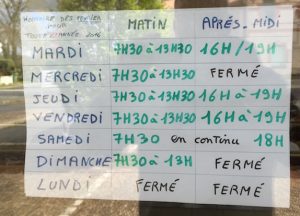 HORAIRE DES
POUR
TOUTE L'ANNÉE 2016
MATIN APRÈS-MIDI
MARDI 7H30 à 13H30 16H/19H
MERCREDI 7H30 à 13H30 FERMÉ
JEUDI 7H30 à 13H30 16H à 19H
VENDREDI 7H30 à 13H30 16H à 19H
SAMEDI 7H30 en continu 18H
DIMANCHE 7H30 à 13H FERMÉ
LUNDI FERMÉ FERMÉ